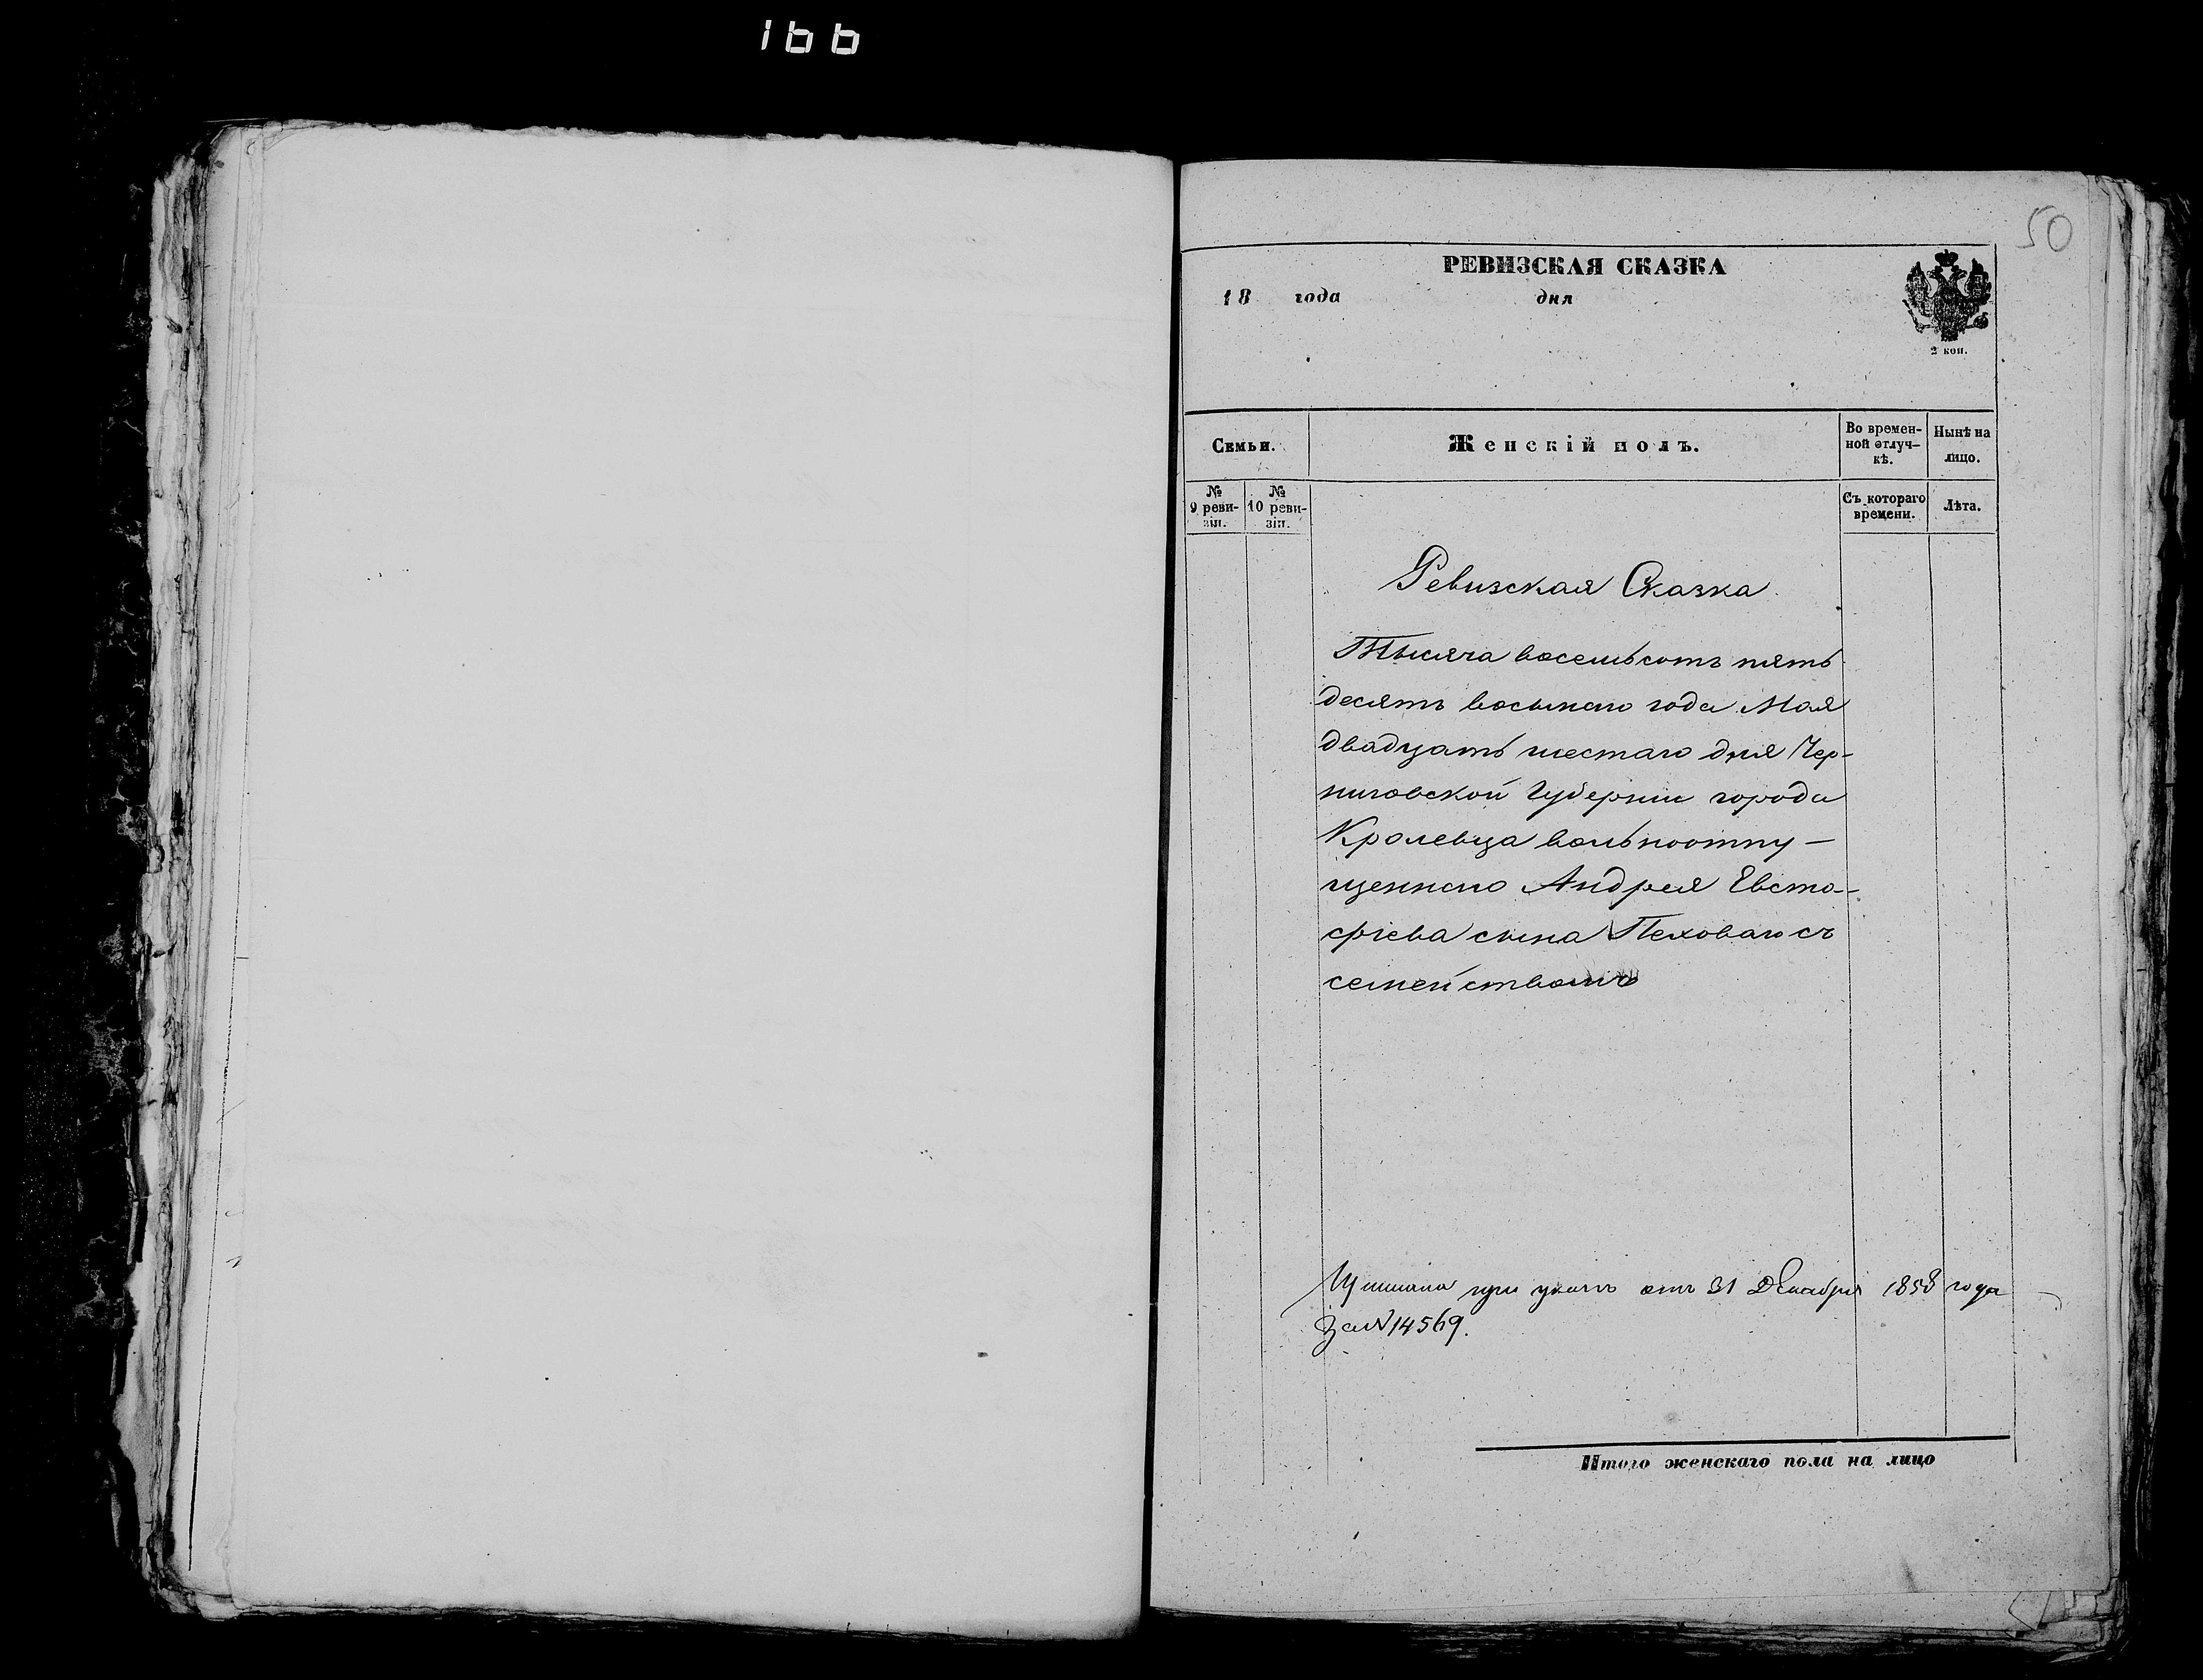 166
50
РЕВИЗСКАЯ СКАЗКА
18 года дня
2 коп.
Семьи. Женскій полъ. Во времен-ной отлуч-кѣ. Нынѣ на лицо.
№ 9 реви-зіи. № 10 реви-зіи. Съ котораго времени. Лѣта.
Ревизская Сказка
Тысяча восемьсотъ пять
десятъ восьмаго года Мая
двадцать шестаго дня Чер-
ниговской Губерніи города
Кролевца вольноотпу-
щеннаго Андрея Евста-
фіева сына Пеховаго съ
семействомъ
при указѣ отъ 31 Декабря 1858 года
за № 14569.
Итого женскаго пола на лицо